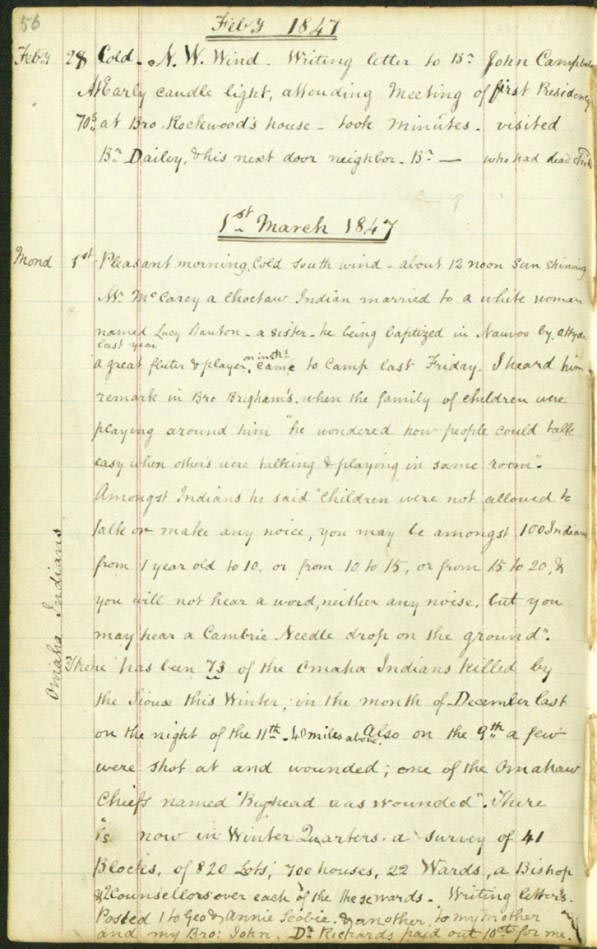 56
Feby 1847
Feby 28 Cold. N.W. Wind. Writing letter to Br. John Campbell
At Early candle light, attending Meeting of first Presidency
70s at Bro Rockwood's house - took minutes. visited
Br. Dailey, & his next door neighbor. Br. — who had dead child
1st March 1847
Mond 1st Pleasant morning, Cold south wind - about 12 noon Sun Shining
Mr. McCarey a Choctaw Indian married to a white woman
named Lucy Stanton - a sister - he being baptized in Nauvoo by O Hyde
last year
a great fluter & player, on inst. came to Camp last Friday. I heard him
remark in Bro Brigham's. when the family of children were
playing around him "he wondered how people could talk
easy when others were talking & playing in same room".
Amongst Indians he said "Children were not allowed to
talk or make any noice, you may be amongst 100 Indians
from 1 year old to 10, or from 10 to 15, or from 15 to 20, &
you will not hear a word, neither any noise, but you
may hear a Cambric Needle drop on the ground".
Omaha Indians
There has been 73 of the Omaha Indians killed by
the Sioux this Winter, in the month of December last
on the night of the 11th. 40 miles above. Also on the 9th a few
were shot at and wounded; one of the Omahaw
Chiefs named "Bighead was wounded". There
is now in Winter Quarters. a survey of 41
Blocks, of 820 Lots, 700 houses, 22 Wards, a Bishop
& 2 Counsellors over each of the these wards. Writing letters.
Posted 1 to Geo & Annie Scobie. & another, to my mother
and my Bro: John. Dr Richards paid out 10cts for me.